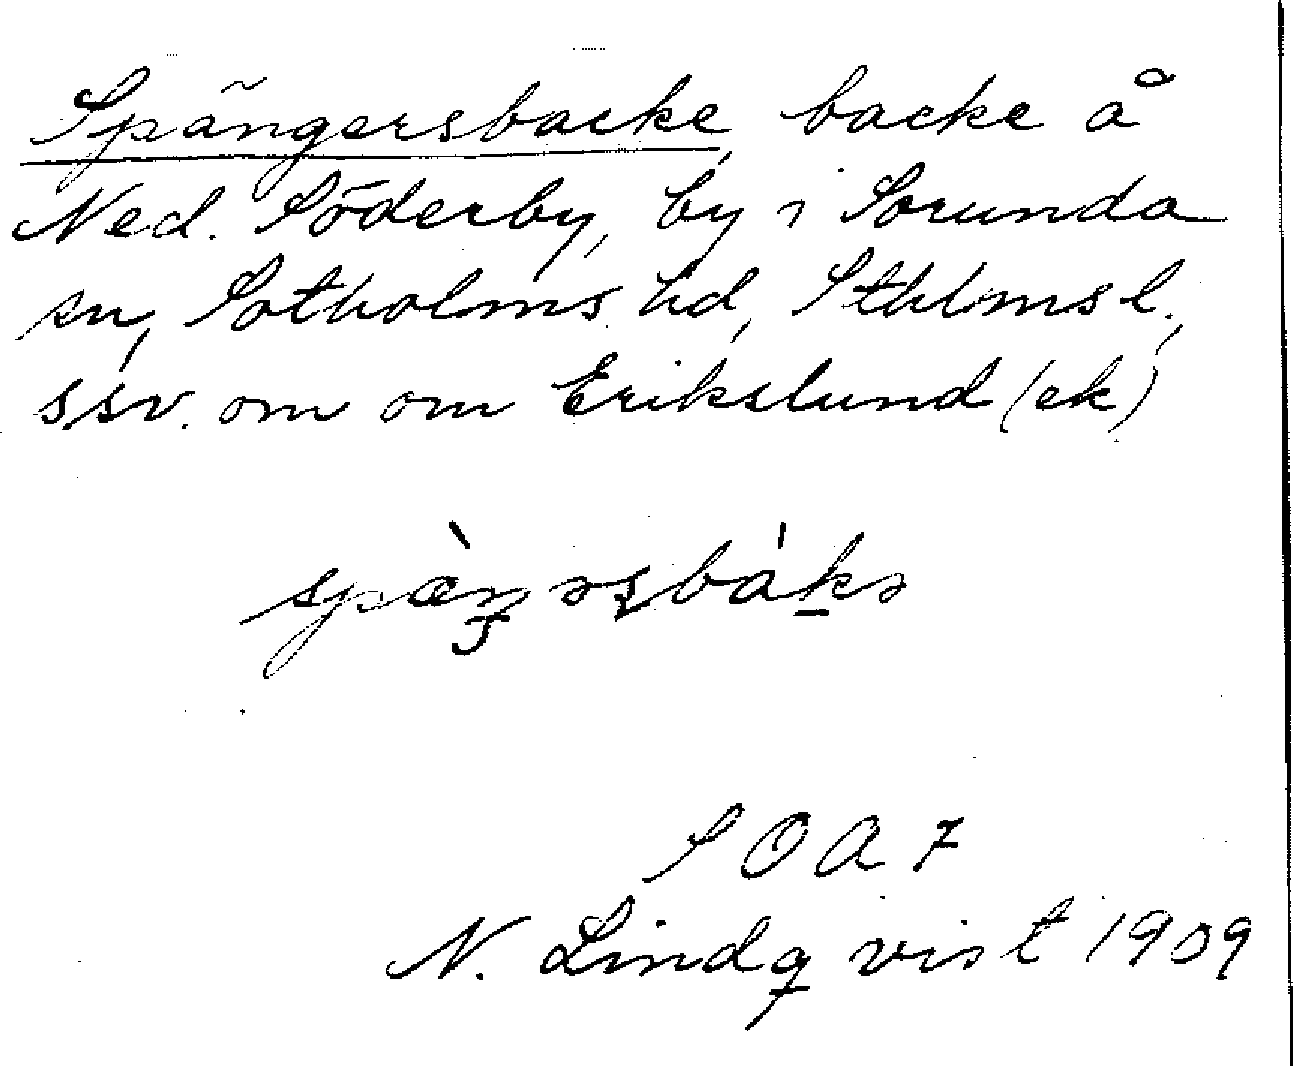 Spängersbacke, backe å
Ned. Söderby, by i Sorunda
sn, Sotholms hd, Sthlms l.,
ssv. om om Erikslund (ek)
SOA 7
N. Lindqvist 1909